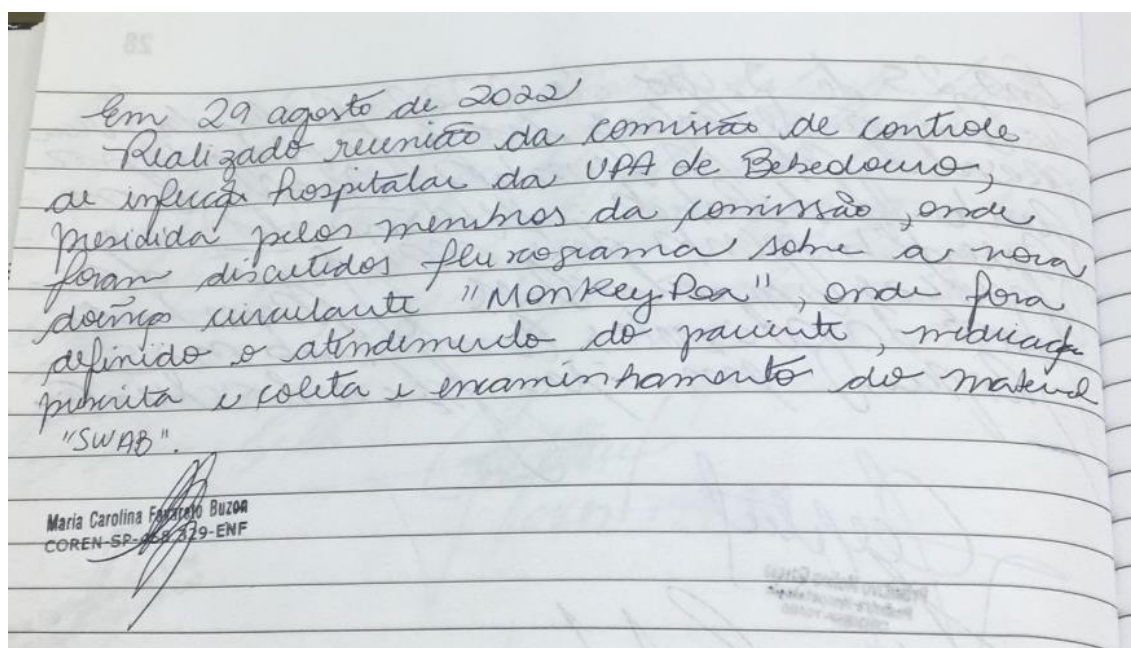 28
Em 29 agosto de 2022
Realizado reunião da comissão de controle
de infecção hospitalar da UPA de Bebedouro,
presidida pelos membros da comissão, onde
foram discutidos fluxograma sobre a nova
doença circulante "MonkeyPox", onde fora
definido o atendimento do paciente, medicação
prescrita e coleta e encaminhamento do material
"SWAB".
Maria Carolina Buzon
COREN-SP- -ENF